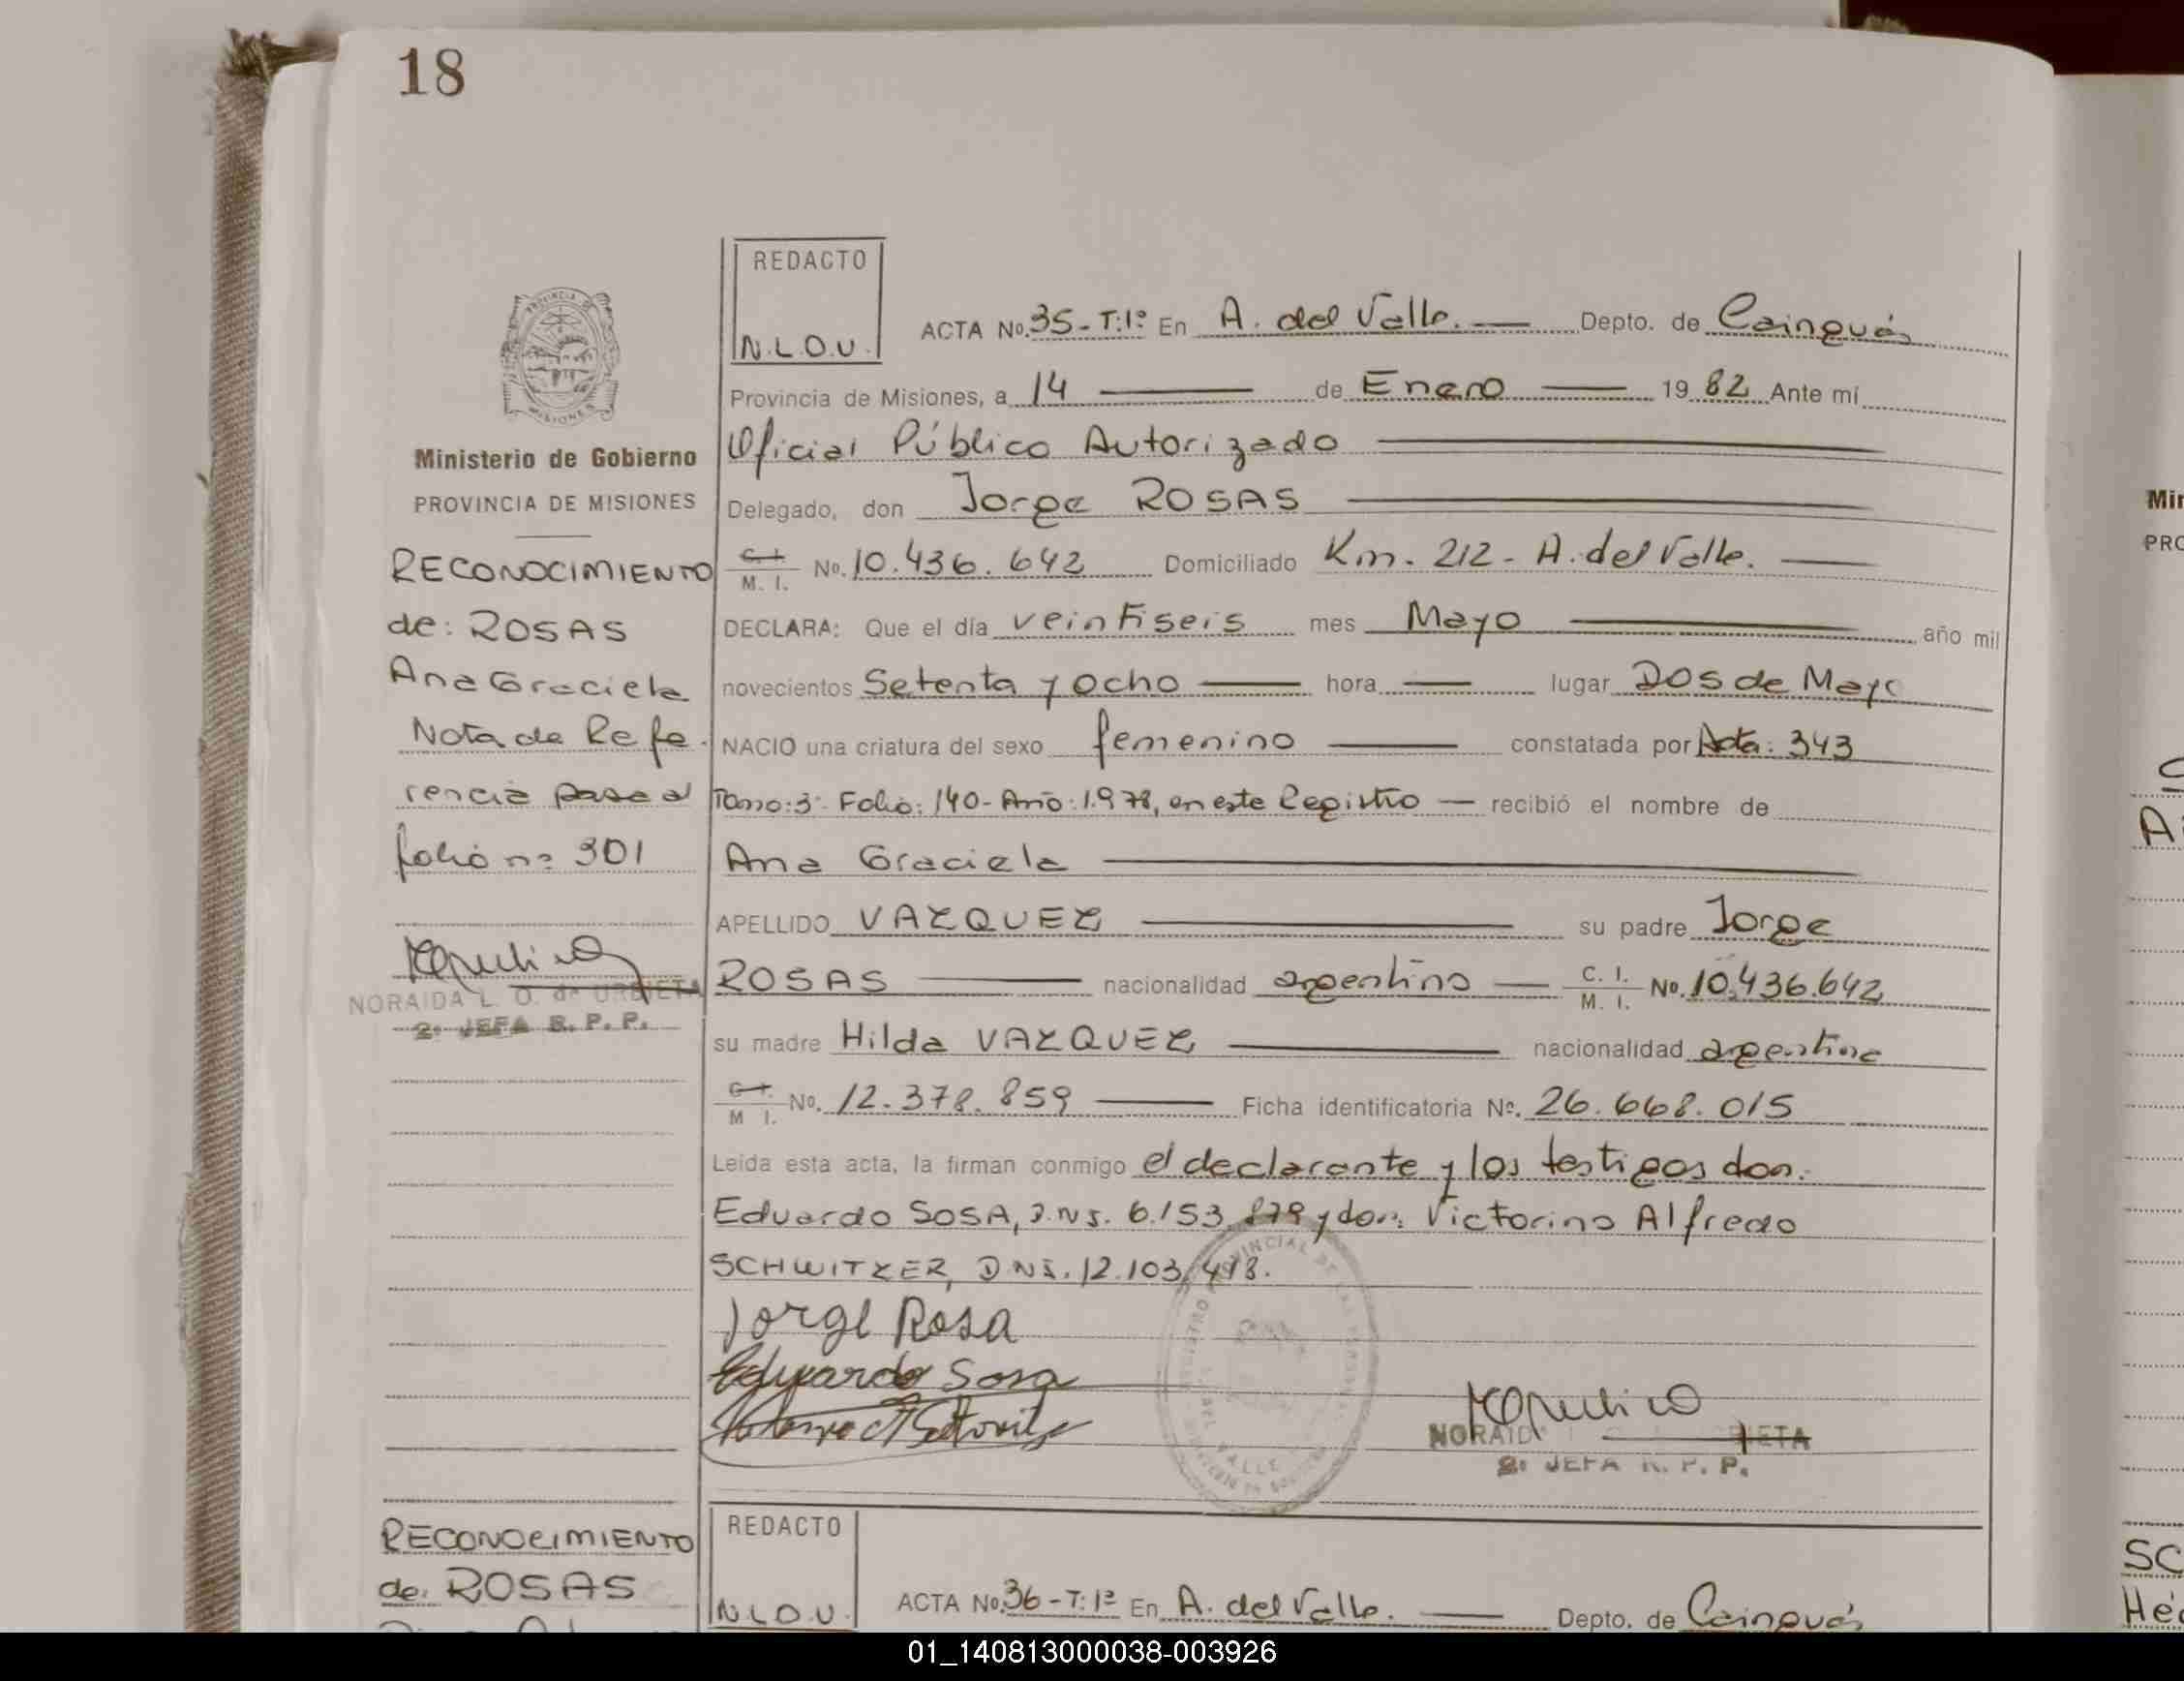 18
REDACTO
N.L.O.U.
ACTA No. 35 - T:1º En A. del Valle. Depto. de Cainguás
Provincia de Misiones, a 14 de Enero 1982 Ante mí
Oficial Público Autorizado
Ministerio de Gobierno
PROVINCIA DE MISIONES
Delegado, don Jorge ROSAS
C. I. M. I. No. 10.436.642 Domiciliado Km. 212 - A. del Valle.
DECLARA: Que el día veintiseis mes Mayo año mil
novecientos Setenta y ocho hora lugar DOS de Mayo
NACIO una criatura del sexo femenino constatada por Acta: 343
Tomo: 3º Folio: 140 - Año: 1.978, en este Registro recibió el nombre de
Ana Graciela
APELLIDO VAZQUEZ su padre Jorge
ROSAS nacionalidad argentino C. I. M. I. No. 10.436.642
su madre Hilda VAZQUEZ nacionalidad argentina
C. I. M I. No. 12.378.859 Ficha identificatoria Nº. 26.668.015
Leída esta acta, la firman conmigo el declarante y los testigos don:
Eduardo SOSA, D.N.I. 6.153.879 y don: Victorino Alfredo
SCHWITZER, DNI. 12.103.418.
Jorge Rosa
Eduardo Sosa
NORAID IETA
2º JEFA R. P. P.
RECONOCIMIENTO
de: ROSAS
Ana Graciela
Nota de Refe
rencia pasa al
folio nº 301
NORAIDA L. O. de URBIETA
2º JEFA R. P. P.
RECONOCIMIENTO
de: ROSAS
REDACTO
N.L.O.U.
ACTA No. 36 - T:1º En A. del Valle. Depto. de Cainguás
Min
PRO
SC
He
01_140813000038-003926